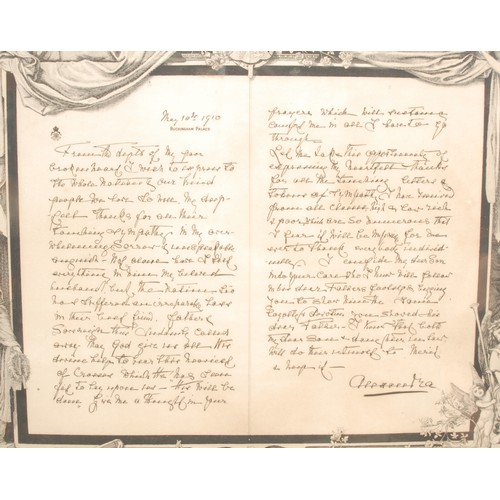 May 10th, 1910
BUCKINGHAM PALACE
From the depth of my poor
broken heart I wish to express to
the whole nation & our kind
people we love so well my deep
felt thanks for all their
touching sympathy in my over-
whelming sorrow & unspeakable
anguish – Not alone have I lost
everything in Him my beloved
husband but the nation too
has suffered an irreparable loss
in their best friend, Father &
Sovereign thus suddenly called
away – May God give us all His
divine help to bear this heaviest
of Crosses which He has seen
fit to lay upon us – His Will be
done. Give me a thought in your
prayers which will sustain &
comfort me in all I have to go
through.
Let me take this opportunity of
expressing my heartfelt thanks
for all the touching letters &
tokens of sympathy I have received
from all classes, high & low, rich
& poor, which are so numerous that
I fear it will be impossible for me
ever to thank everybody individ-
ually. I confide my dear Son
into your care, who I know will follow
in his dear Father's footsteps, begging
you to show him the same
loyalty & devotion you showed his
dear Father – I know that both
my dear Son & daughter in law
will do their utmost to merit
& keep it –
Alexandra